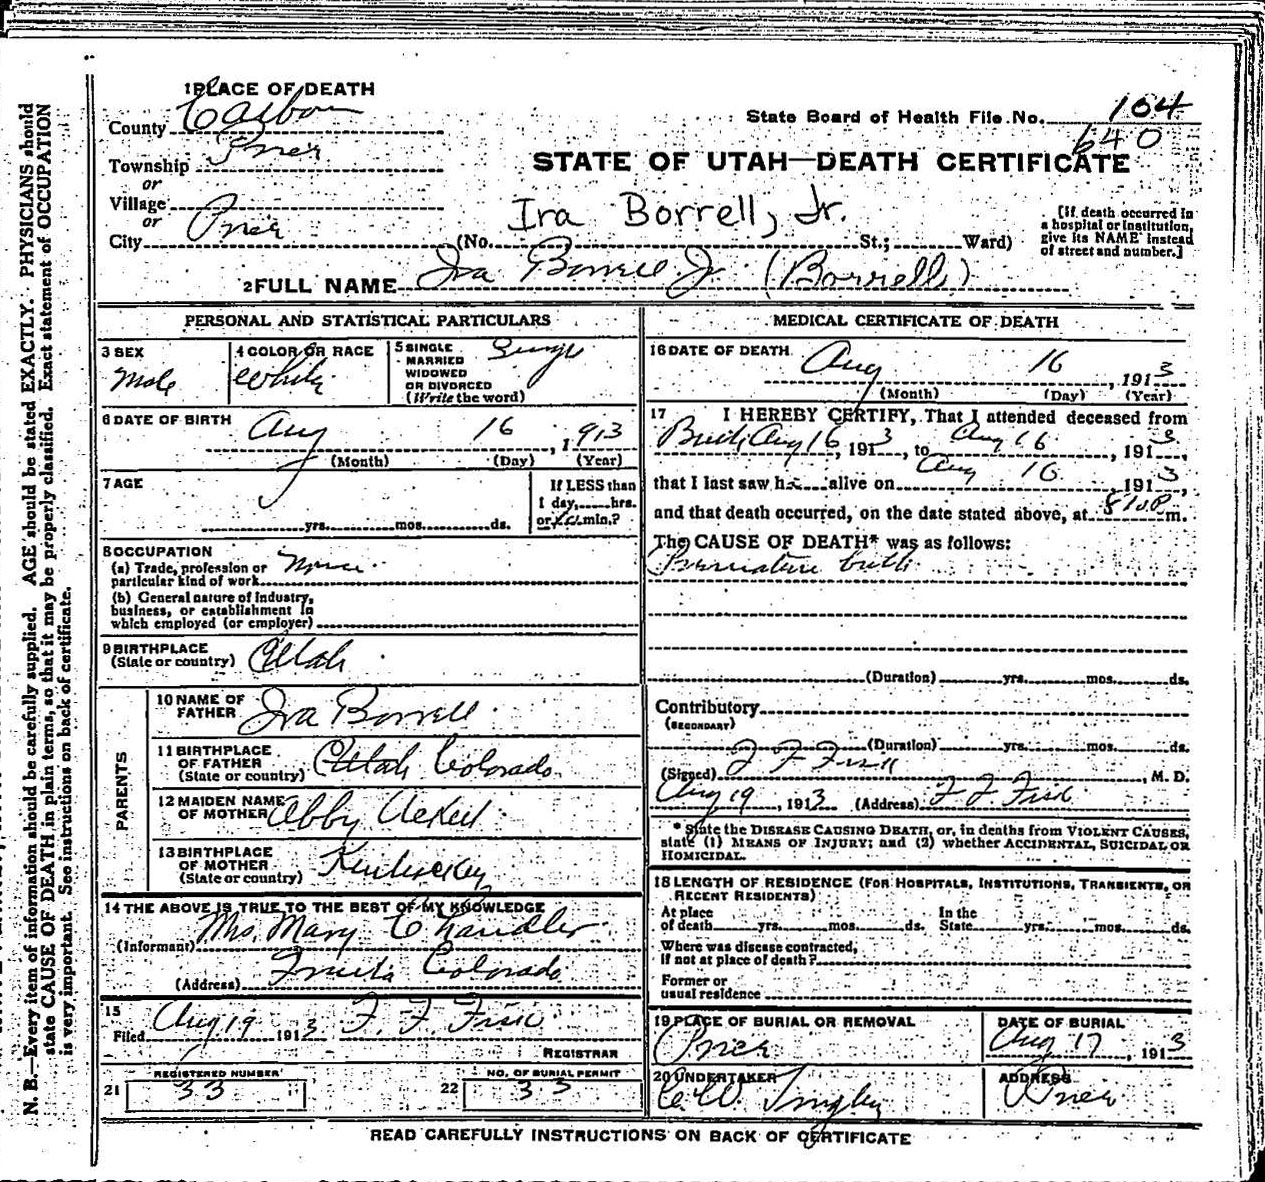 1 PLACE OF DEATH
County Carbon
State Board of Health File No. 104
640
Township Price
STATE OF UTAH—DEATH CERTIFICATE
or
Village
or
Ira Borrell, Jr.
City Price (No. St.; Ward)
[If death occurred in a hospital or institution, give its NAME instead of street and number.]
2 FULL NAME Ira Borrell Jr (Borrell)
PERSONAL AND STATISTICAL PARTICULARS
3 SEX Male
4 COLOR OR RACE White
5 SINGLE MARRIED WIDOWED OR DIVORCED (Write the word) Single
6 DATE OF BIRTH Aug 16, 1913
(Month) (Day) (Year)
7 AGE yrs. mos. ds.
If LESS than 1 day, hrs. or min.?
8 OCCUPATION
(a) Trade, profession or particular kind of work None
(b) General nature of industry, business, or establishment in which employed (or employer)
9 BIRTHPLACE (State or country) Utah
PARENTS
10 NAME OF FATHER Ira Borrell
11 BIRTHPLACE OF FATHER (State or country) Utah Colorado
12 MAIDEN NAME OF MOTHER Abby
13 BIRTHPLACE OF MOTHER (State or country) Kentuckey
14 THE ABOVE IS TRUE TO THE BEST OF MY KNOWLEDGE
(Informant) Mrs. Mary Chandler
(Address) Fruita Colorado
15 Filed Aug 19 1913 F. F. Fisk
REGISTRAR
REGISTERED NUMBER
21 33
NO. OF BURIAL PERMIT
22 33
MEDICAL CERTIFICATE OF DEATH
16 DATE OF DEATH Aug 16, 1913
(Month) (Day) (Year)
17 I HEREBY CERTIFY, That I attended deceased from
Birth Aug 16, 1913, to Aug 16, 1913,
that I last saw h alive on Aug 16, 1913,
and that death occurred, on the date stated above, at m.
The CAUSE OF DEATH* was as follows:
Premature birth
(Duration) yrs. mos. ds.
Contributory
(SECONDARY)
(Duration) yrs. mos. ds.
(Signed) F F Fisk, M. D.
Aug 19, 1913 (Address) F F Fisk
* State the DISEASE CAUSING DEATH, or, in deaths from VIOLENT CAUSES, state (1) MEANS OF INJURY; and (2) whether ACCIDENTAL, SUICIDAL OR HOMICIDAL.
18 LENGTH OF RESIDENCE (FOR HOSPITALS, INSTITUTIONS, TRANSIENTS, OR RECENT RESIDENTS)
At place of death yrs. mos. ds. In the State yrs. mos. ds.
Where was disease contracted, if not at place of death?
Former or usual residence
19 PLACE OF BURIAL OR REMOVAL Price
DATE OF BURIAL Aug 17, 1913
20 UNDERTAKER Tingley
ADDRESS Price
READ CAREFULLY INSTRUCTIONS ON BACK OF CERTIFICATE
N. B.—Every item of information should be carefully supplied. AGE should be stated EXACTLY. PHYSICIANS should
state CAUSE OF DEATH in plain terms, so that it may be properly classified. Exact statement of OCCUPATION
is very important. See instructions on back of certificate.